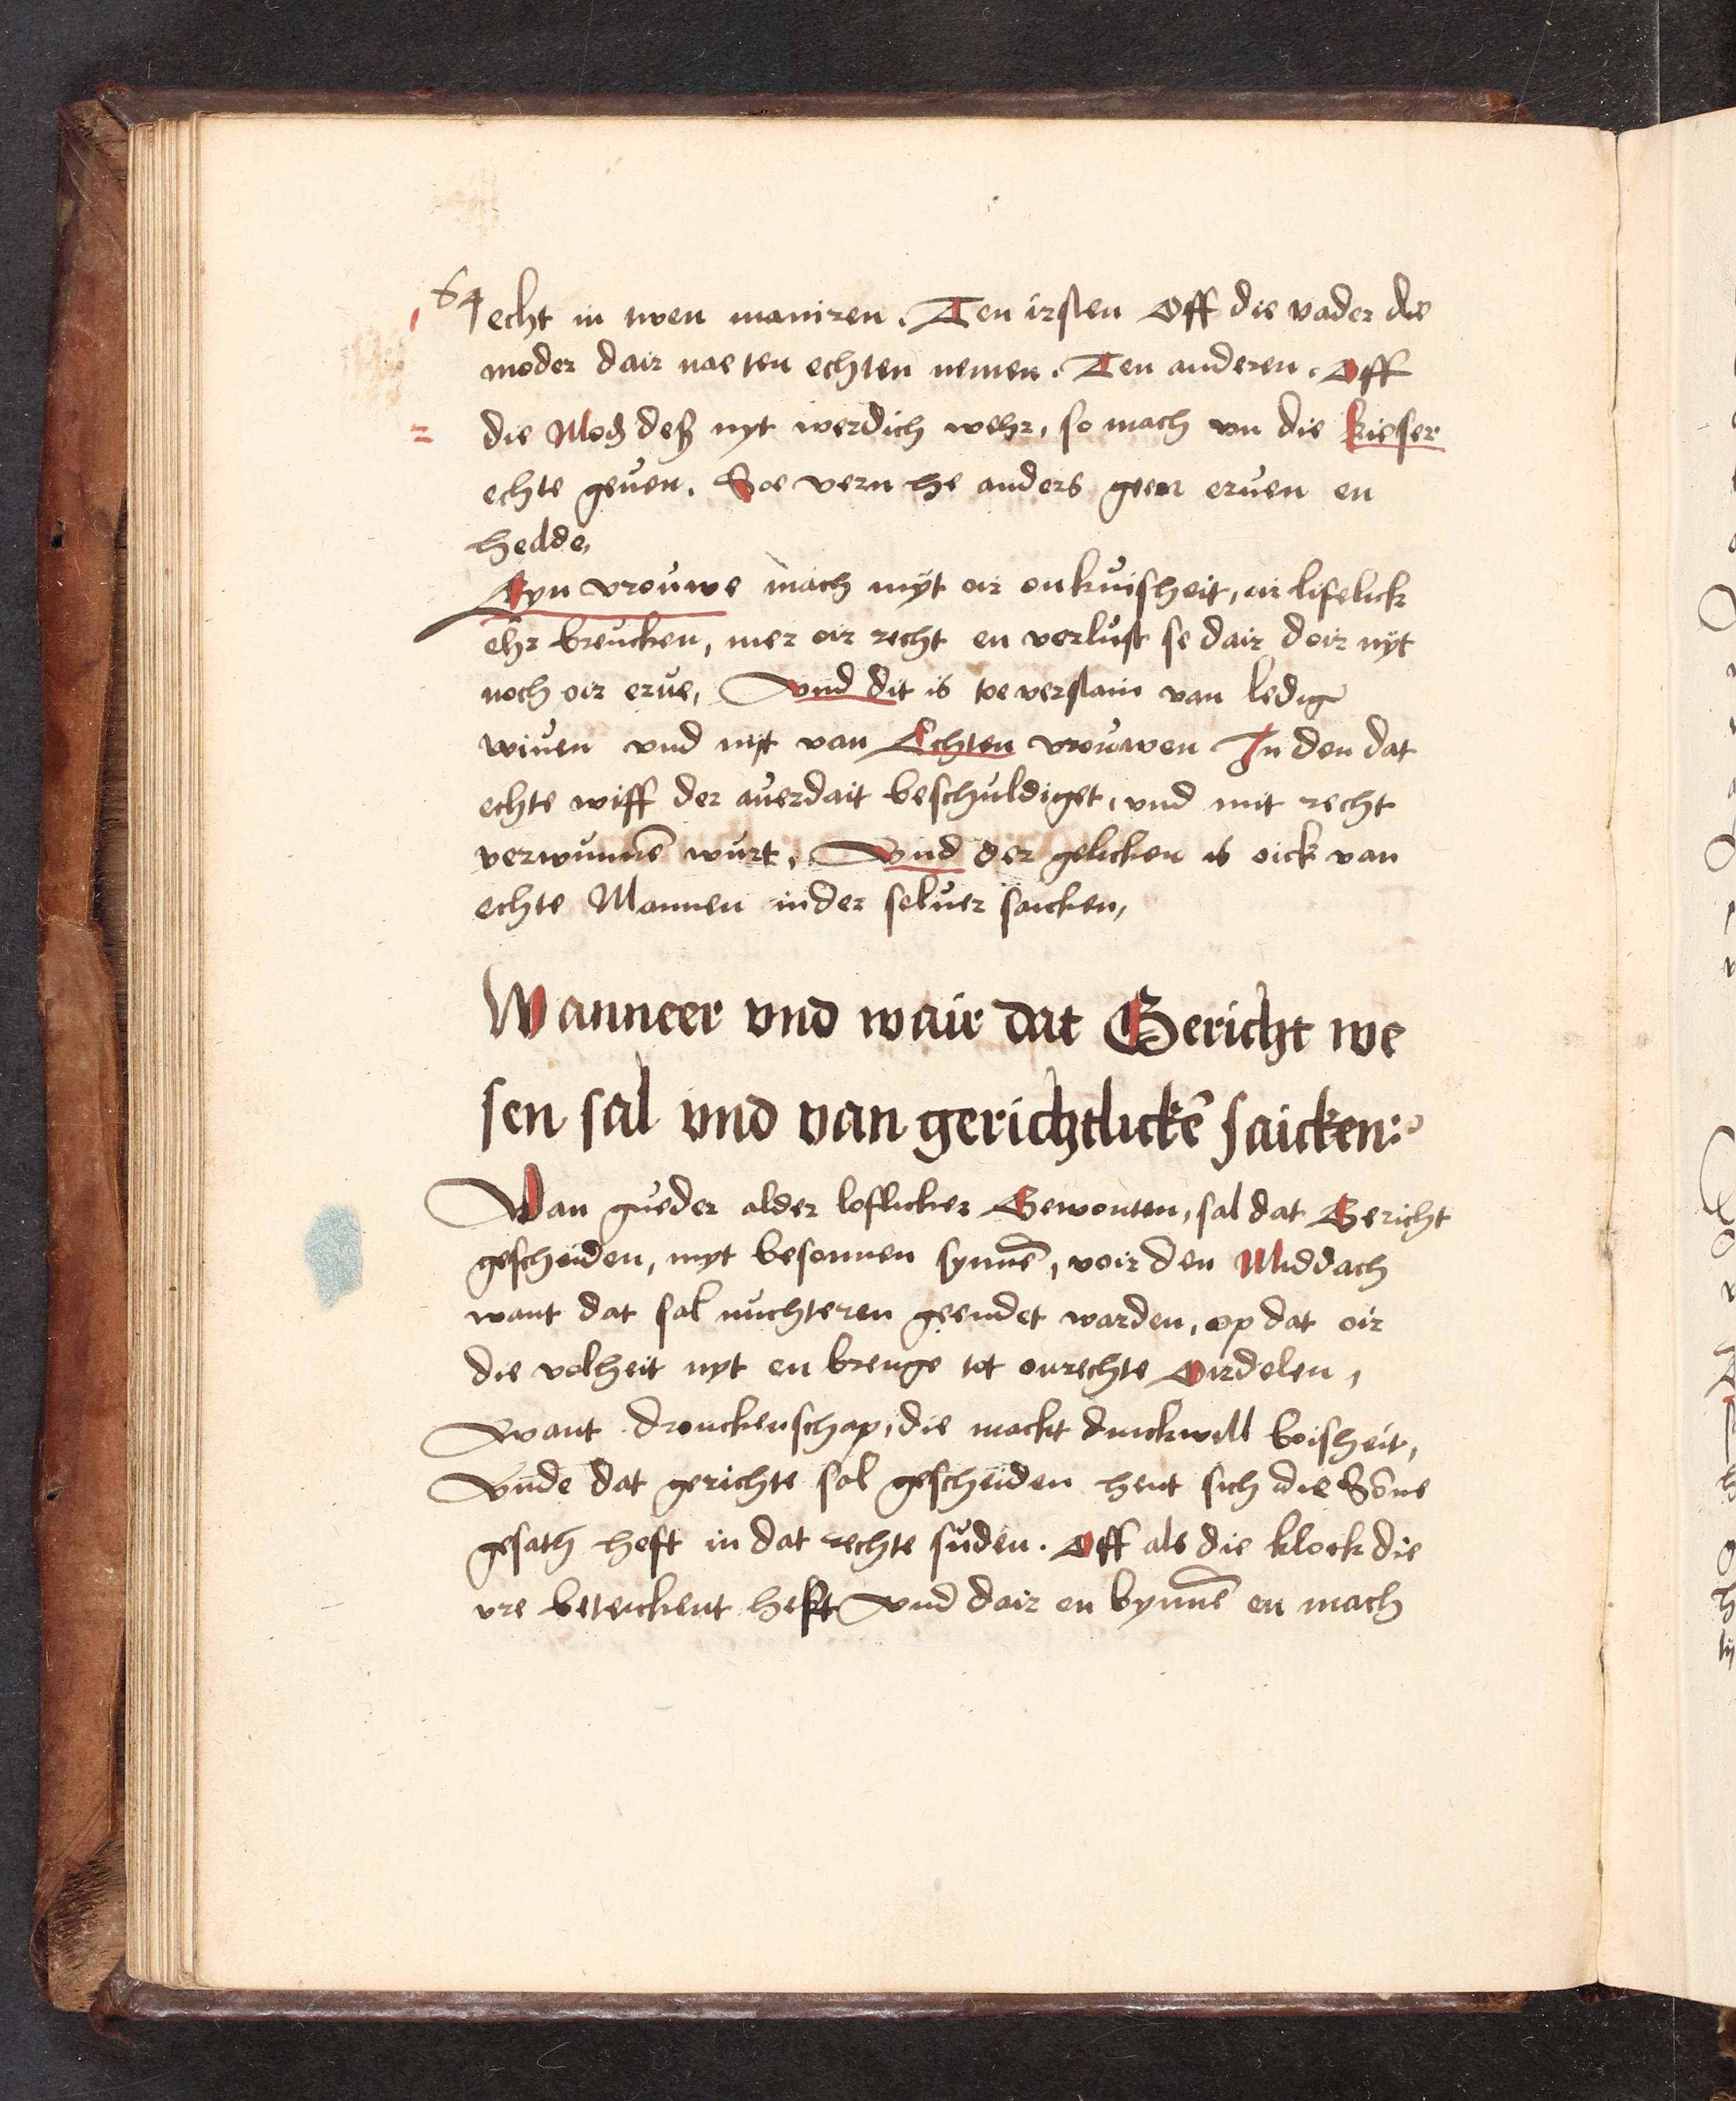 64
echt in twen maniren. Ten irsten Off die vader die
moder dair nae ten echten nemen. Ten anderen. Off
die Mod deß nyt werdich wehr, so mach vn die kieser
echte geuen. Soe vern he anders geen eruen en
hedde,
Eyn vrouwe mach myt oir onkuisheit, oir lifelick
ehr breucken, mer oir recht en verlust se dair doir nyt
noch oir erue, Vnd dit is toe verstain van ledig
wiuen vnd nyt van Echten vrouwen In den dat
echte wiff der auerdait beschuldiget, vnd mit recht
verwunnē wurt, Vnd der gelicken is oick van
echte Mannen in der seluer saicken,
Wanneer vnd wair dat Gericht we
sen sal vnd van gerichtlickē saicken:
Van gueder alder loflicker Gewonten, sal dat Gericht
gescheiden, myt besonnen synnē, voir den Middach
want dat sal nuchteren geendet warden, op dat oir
die volheit nyt en brenge tot onrechte Oirdelen,
Want dronckenschap, die mackt duickwill boisheit,
Vnde dat gerichte sal gescheiden hent sich die Sōne
gesath heft in dat rechte suden. Off als die klock die
vre beteickent heft Vnd dair en bynnē en mach